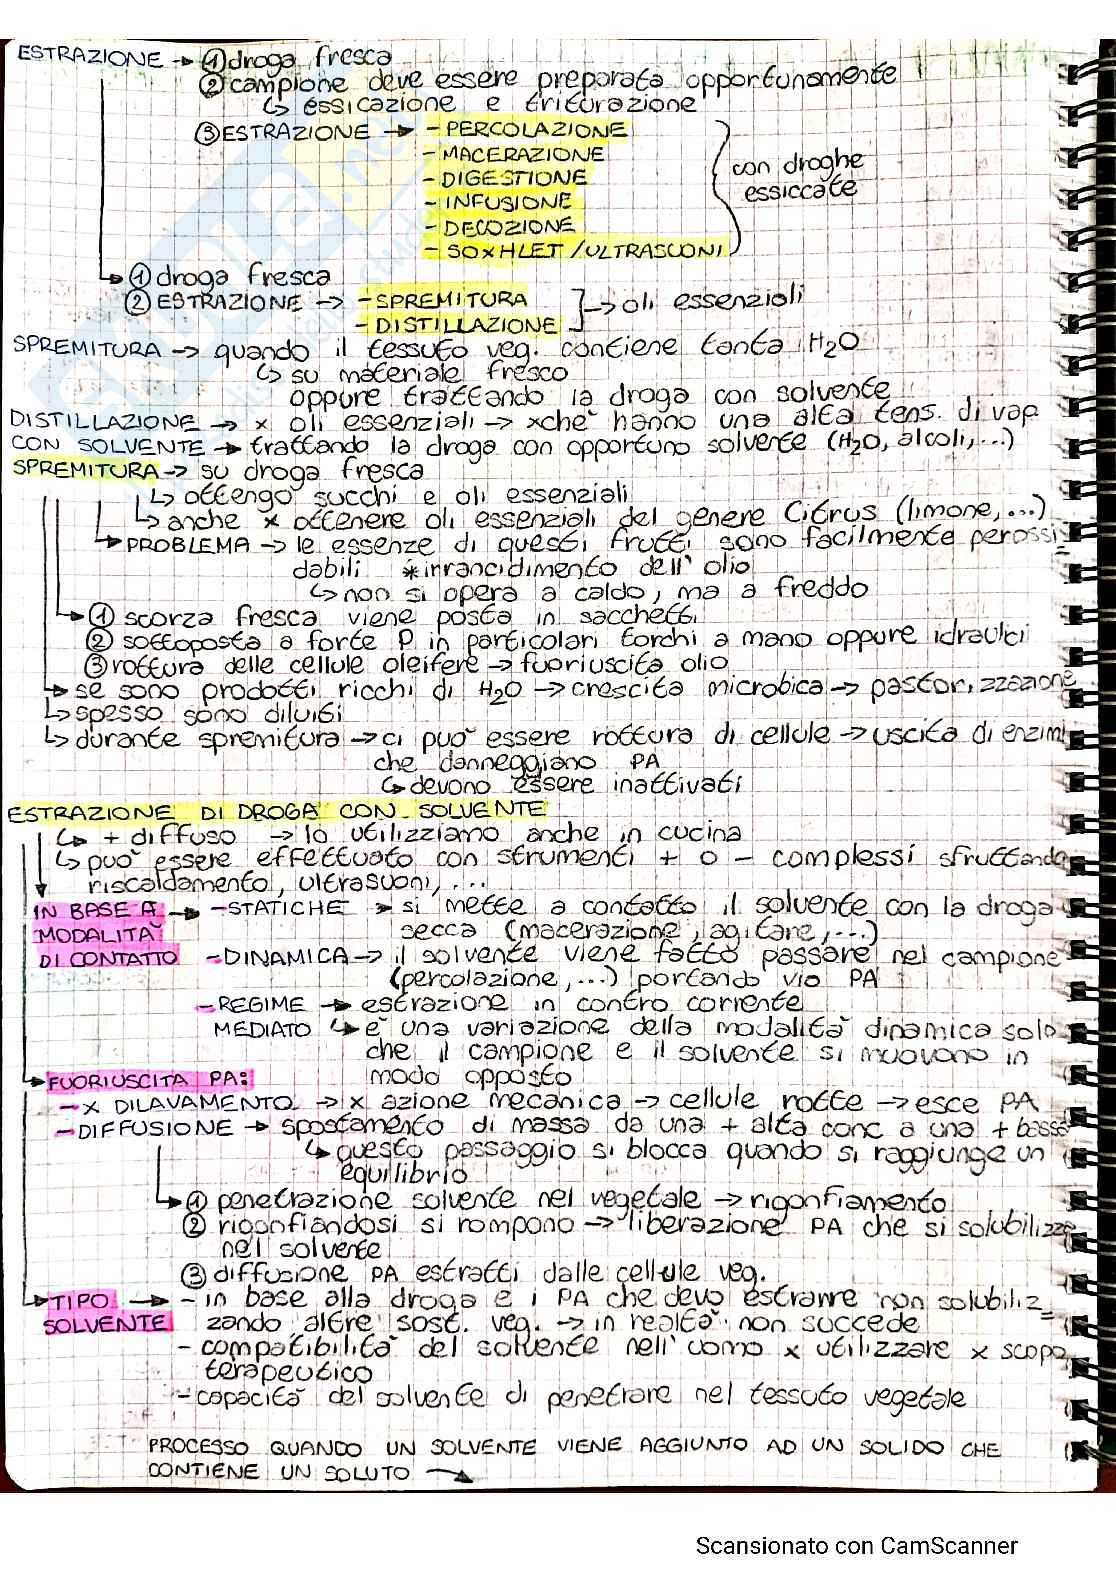 ESTRAZIONE → ① droga fresca
② campione deve essere preparata opportunamente
↳ essicazione e triturazione
③ ESTRAZIONE → - PERCOLAZIONE
- MACERAZIONE
- DIGESTIONE
- INFUSIONE
- DECOZIONE
- SOXHLET / ULTRASUONI
con droghe
essiccate
① droga fresca
② ESTRAZIONE → - SPREMITURA
- DISTILLAZIONE
→ oli essenziali
SPREMITURA → quando il tessuto veg. contiene tanta H₂O
↳ su materiale fresco
oppure trattando la droga con solvente
DISTILLAZIONE → x oli essenziali → xchè hanno una alta tens. di vap
CON SOLVENTE → trattando la droga con opportuno solvente (H₂O, alcoli,...)
SPREMITURA → su droga fresca
↳ ottengo succhi e oli essenziali
↳ anche x ottenere oli essenziali del genere Citrus (limone,...)
PROBLEMA → le essenze di questi frutti sono facilmente perossi
dabili *irrancidimento dell'olio
↳ non si opera a caldo, ma a freddo
① scorza fresca viene posta in sacchetti
② sottoposta a forte P in particolari torchi a mano oppure idraulici
③ rottura delle cellule oleifere → fuoriuscita olio
→ se sono prodotti ricchi di H₂O → crescita microbica → pastorizzazione
↳ spesso sono diluiti
↳ durante spremitura → ci può essere rottura di cellule → uscita di enzimi
che danneggiano PA
↳ devono essere inattivati
ESTRAZIONE DI DROGA CON SOLVENTE
↳ + diffuso → lo utilizziamo anche in cucina
↳ può essere effettuato con strumenti + o - complessi sfruttando
riscaldamento, ultrasuoni,...
IN BASE A → - STATICHE → si mette a contatto il solvente con la droga
MODALITÀ secca (macerazione, agitare,...)
DI CONTATTO - DINAMICA → il solvente viene fatto passare nel campione
(percolazione,...) portando via PA
- REGIME → estrazione in contro corrente
MEDIATO ↳ è una variazione della modalità dinamica solo
che il campione e il solvente si muovono in
modo opposto
FUORIUSCITA PA:
- x DILAVAMENTO → x azione mecanica → cellule rotte → esce PA
- DIFFUSIONE → spostamento di massa da una + alta conc a una + bassa
↳ questo passaggio si blocca quando si raggiunge un
equilibrio
① penetrazione solvente nel vegetale → rigonfiamento
② rigonfiandosi si rompono → liberazione PA che si solubilizza
nel solvente
③ diffusione PA estratti dalle cellule veg.
TIPO → - in base alla droga e i PA che devo estrarre non solubiliz
SOLVENTE zando altre sost. veg. → in realtà non succede
- compatibilità del solvente nell'uomo x utilizzare x scopo
terapeutico
- capacità del solvente di penetrare nel tessuto vegetale
PROCESSO QUANDO UN SOLVENTE VIENE AGGIUNTO AD UN SOLIDO CHE
CONTIENE UN SOLUTO →
Scansionato con CamScanner